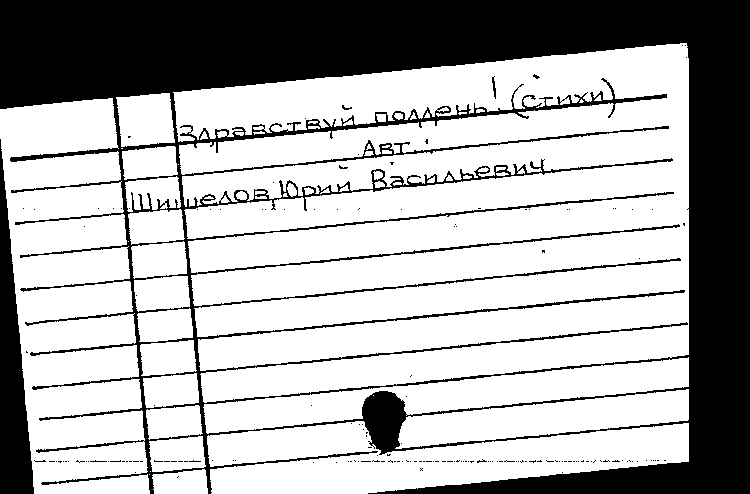 Здравствуй полдень! (стихи)
Авт.:
Шишелов, Юрий Васильевич.